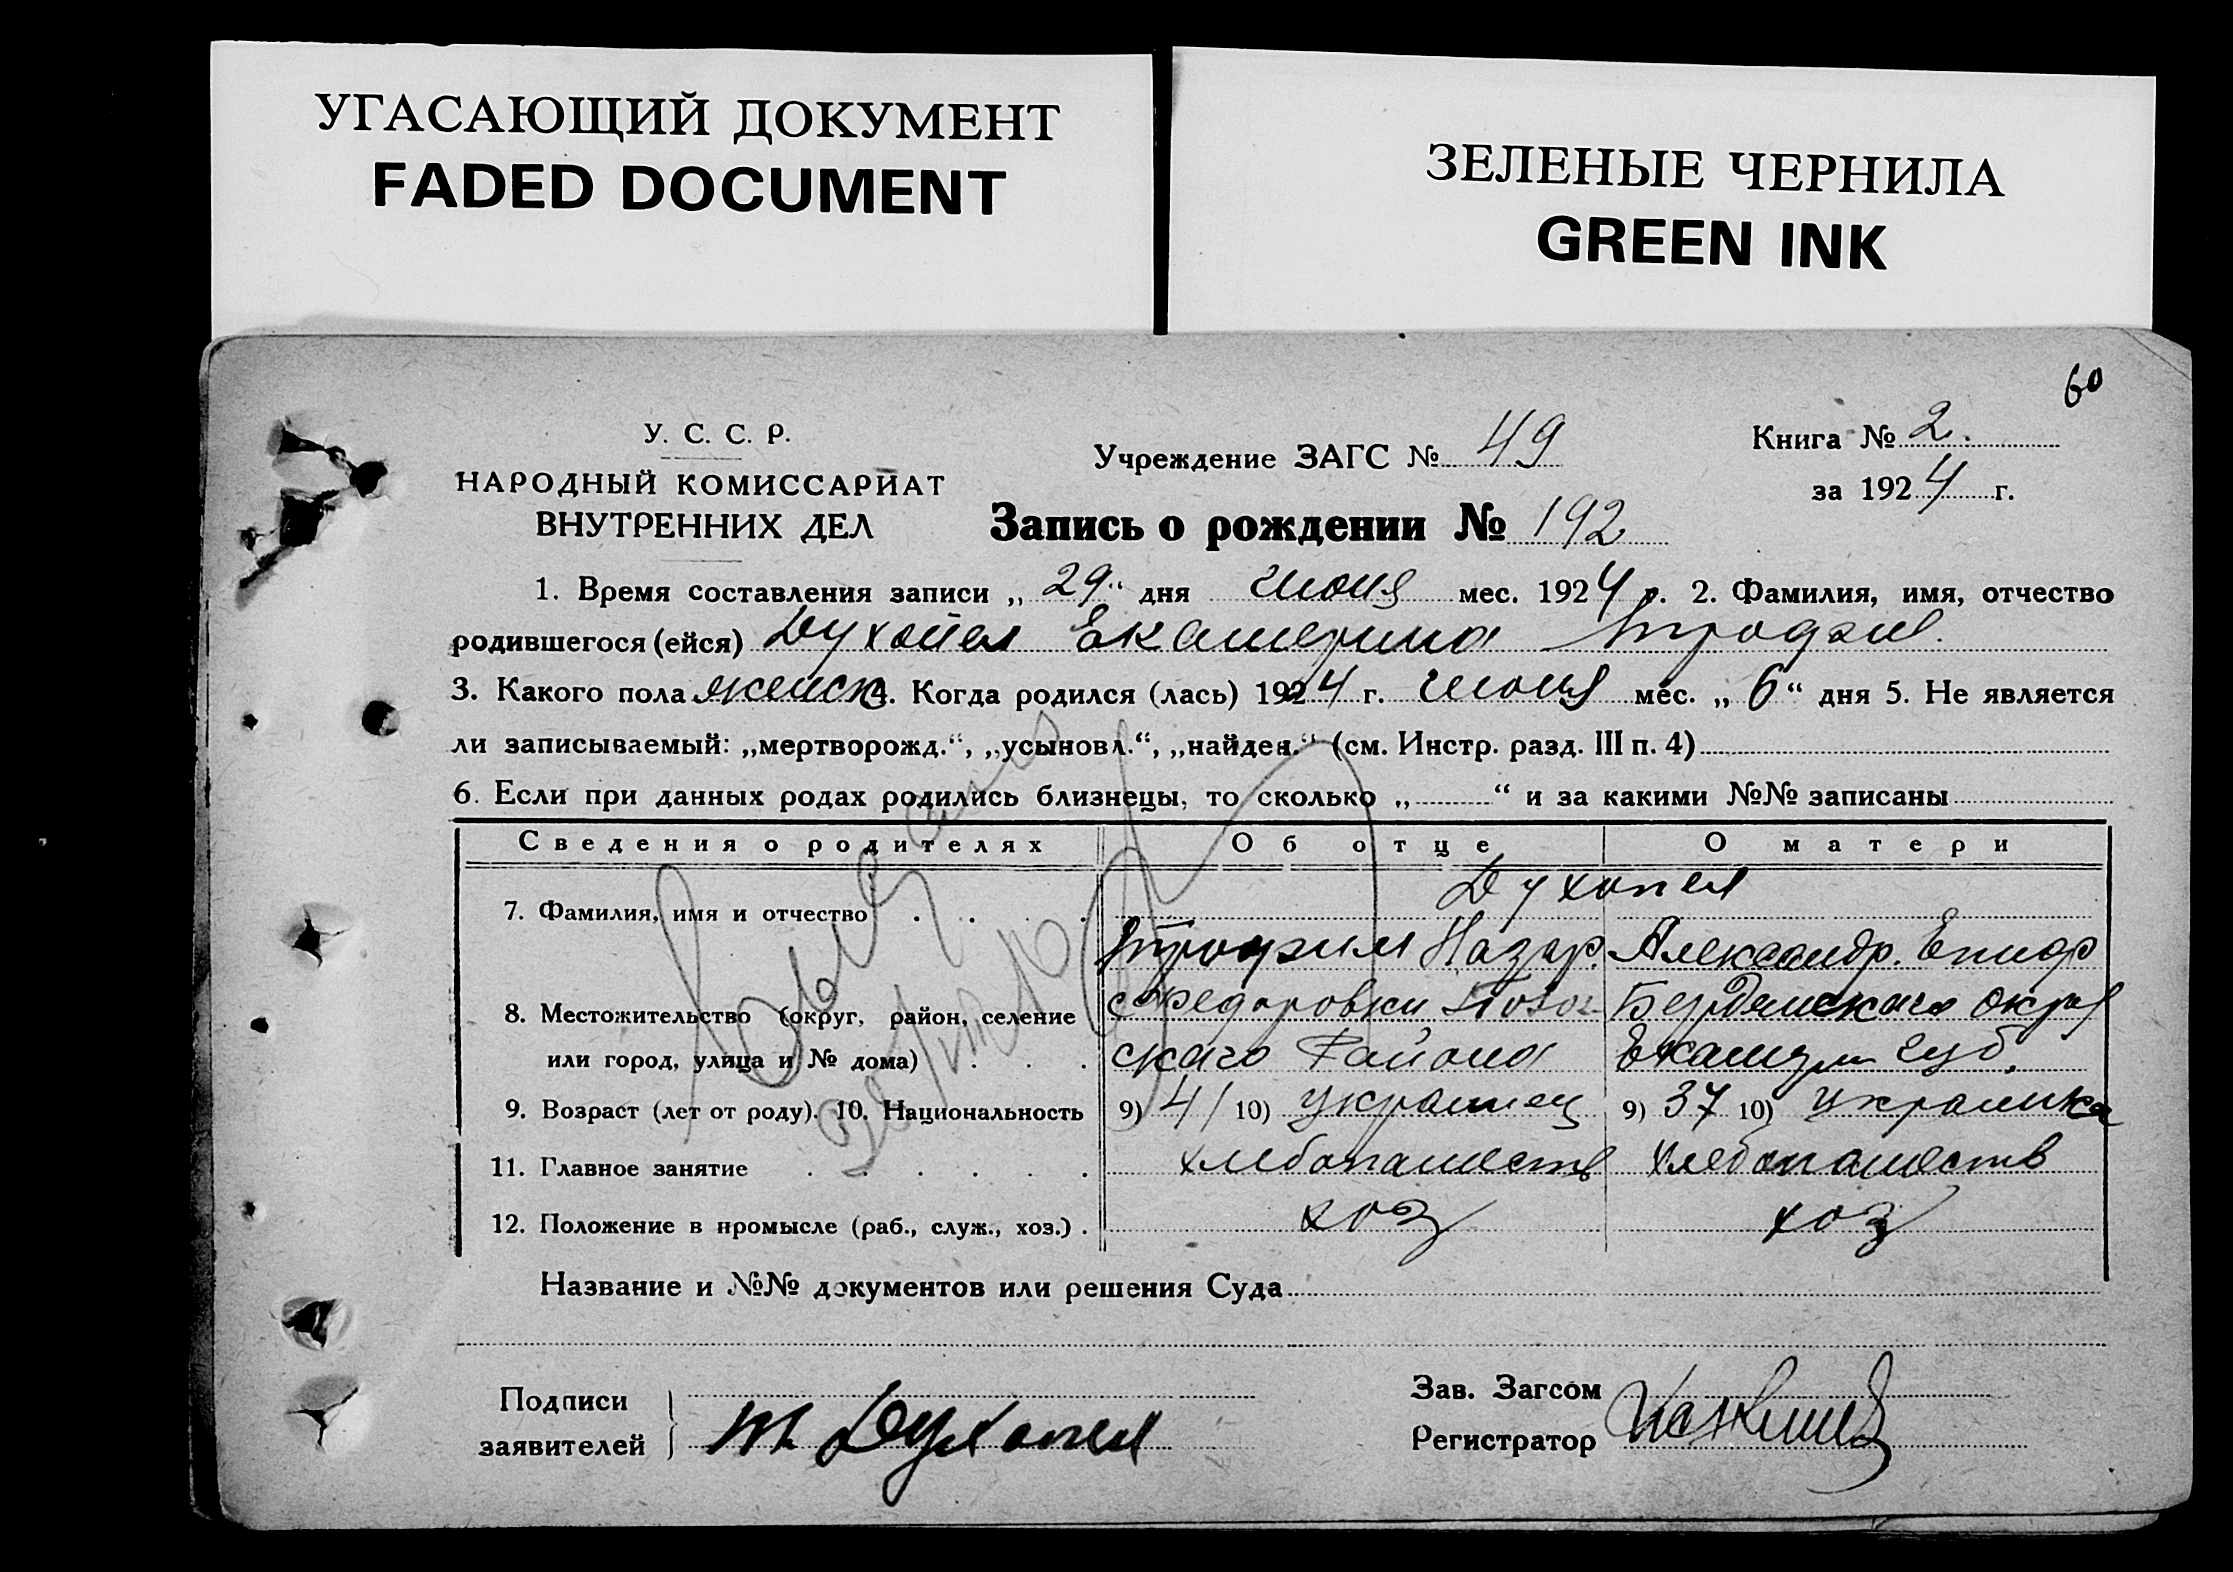 УГАСАЮЩИЙ ДОКУМЕНТ
FADED DOCUMENT
ЗЕЛЕНЫЕ ЧЕРНИЛА
GREEN INK
60
У. С. С. Р.
НАРОДНЫЙ КОМИССАРИАТ
ВНУТРЕННИХ ДЕЛ
Учреждение ЗАГС № 49
Книга № 2.
за 1924 г.
Запись о рождении № 192
1. Время составления записи „ 29 “ дня июня мес. 1924 г. 2. Фамилия, имя, отчество
родившегося (ейся) Духопел Екатерина Трофим.
3. Какого пола женск 4. Когда родился (лась) 1924 г. июня мес. „ 6 “ дня 5. Не является
ли записываемый: „мертворожд.“, „усыновл.“, „найден.“ (см. Инстр. разд. III п. 4)
6. Если при данных родах родились близнецы, то сколько „ “ и за какими №№ записаны
Сведения о родителях Об отце О матери
7. Фамилия, имя и отчество Духопел
Трофим Назар. Александр.
8. Местожительство (округ, район, селение с Федоровки Бердянскаго округ
или город, улица и № дома) скаго Района губ.
9. Возраст (лет от роду). 10. Национальность 9) 41 10) украинец 9) 37 10) украинка
11. Главное занятие хлебопашеств хлебопашеств
12. Положение в промысле (раб., служ., хоз.) хоз хоз
Название и №№ документов или решения Суда
Подписи
заявителей Т. Духопел
Зав. Загсом
Регистратор